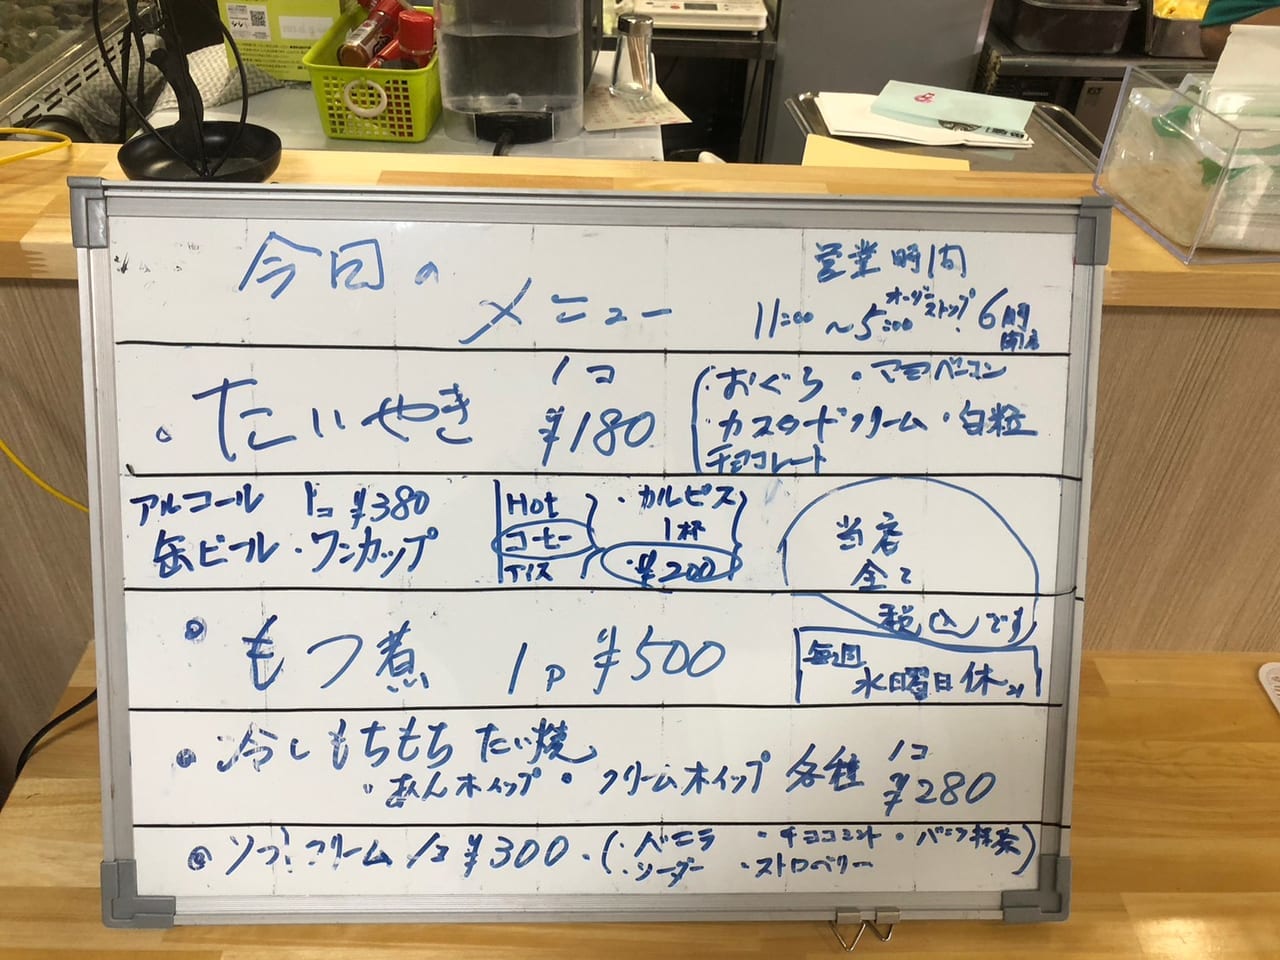 今日の
メニュー
営業時間
11:00 ~ 5:00 オーダーストップ 6時閉店
・たいやき 1コ ¥180
・おぐら ・マヨベーコン
・カスタードクリーム ・白粒
チョコレート
アルコール 1コ ¥380
缶ビール・ワンカップ
Hot
コーヒー
アイス
・カルピス
1杯
・¥200
当店
全て
税込です
・もつ煮 1P ¥500
毎週
水曜日休み
・冷しもちもちたい焼
・あんホイップ ・クリームホイップ 各種 1コ ¥280
・ソフトクリーム 1コ ¥300・(・バニラ ・チョコミント ・バニラ抹茶
・ソーダー ・ストロベリー)